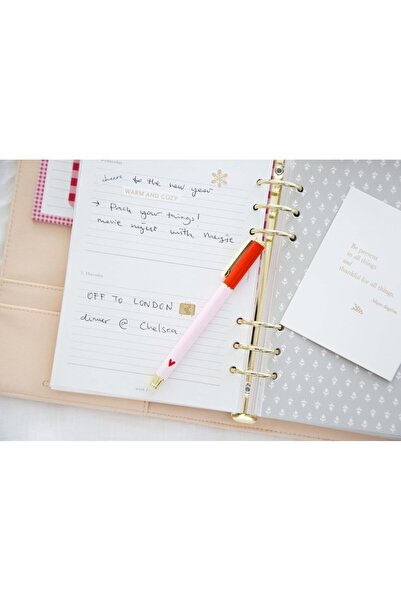 cheers to the new year
WARM AND COZY
→ Pack your things!
movie night with maggie
7. Thursday
OFF TO LONDON
dinner @ Chelsea
Be present
in all things
and
thankful for all things.
Maya Angelou